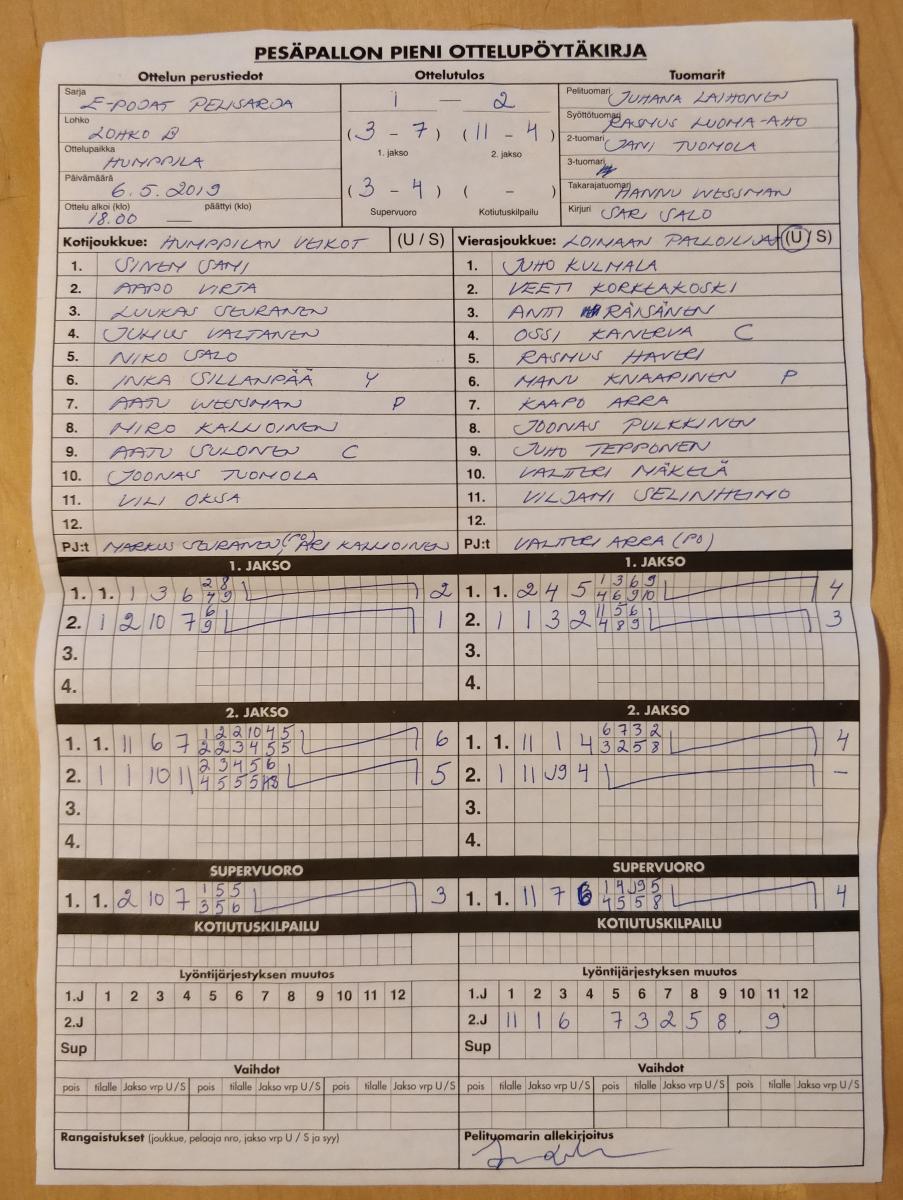 PESÄPALLON PIENI OTTELUPÖYTÄKIRJA
Ottelun perustiedot Ottelutulos Tuomarit
Sarja E-POJAT PELISARJA
Lohko LOHKO B
Ottelupaikka HUMPPILA
Päivämäärä 6.5.2019
Ottelu alkoi (klo) 18.00 — päättyi (klo)
1 — 2
( 3 - 7 ) ( 11 - 4 )
1. jakso 2. jakso
( 3 - 4 ) ( - )
Supervuoro Kotiutuskilpailu
Pelituomari JUHANA LAIHONEN
Syöttötuomari RASMUS LUOMA-AHO
2-tuomari JANI TUOMOLA
3-tuomari
Takarajatuomari HANNU WESSMAN
Kirjuri SARI SALO
Kotijoukkue: HUMPPILAN VEIKOT (U / S)
1. SINEM SAMI
2. AAPO VIRTA
3. LUUKAS SEURANEN
4. JULIUS VALTANEN
5. NIKO SALO
6. INKA SILLANPÄÄ Y
7. AATU WESSMAN P
8. MIRO KALLIOINEN
9. AATU SULONEN C
10. JOONAS TUOMOLA
11. VILI OKSA
12.
PJ:t MARKUS SEURANEN (PO), ARI KALLIOINEN
Vierasjoukkue: LOIMAAN PALLOILIJAT (U / S)
1. JUHO KULMALA
2. VEETI KORKEAKOSKI
3. ANTTI RÄISÄNEN
4. OSSI KANERVA C
5. RASMUS HAVERI
6. MANU KNAAPINEN P
7. KAAPO ARRA
8. JOONAS PULKKINEN
9. JUHO TEPPONEN
10. VALTTERI MÄKELÄ
11. VILJAMI SELINHEIMO
12.
PJ:t VALTTERI ARRA (PO)
1. JAKSO
1. 1. 1 3 6 2 8 2
4 9
2. 1 2 10 7 6 1
9
3.
4.
1. JAKSO
1. 1. 2 4 5 1 3 6 9 4
4 6 9 10
2. 1 1 3 2 11 5 6 3
4 8 9
3.
4.
2. JAKSO
1. 1. 11 6 7 1 2 2 10 4 5 6
2 2 3 4 5 5
2. 1 1 10 11 2 3 4 5 6 5
4 5 5 5
3.
4.
2. JAKSO
1. 1. 11 1 4 6 7 3 2 4
3 2 5 8
2. 1 11 J9 4 –
3.
4.
SUPERVUORO
1. 1. 2 10 7 1 5 5 3
3 5 6
SUPERVUORO
1. 1. 11 7 6 1 4 J9 5 4
4 5 5 8
KOTIUTUSKILPAILU
KOTIUTUSKILPAILU
Lyöntijärjestyksen muutos
1.J 1 2 3 4 5 6 7 8 9 10 11 12
2.J
Sup
Lyöntijärjestyksen muutos
1.J 1 2 3 4 5 6 7 8 9 10 11 12
2.J 11 1 6 7 3 2 5 8 9
Sup
Vaihdot
pois tilalle Jakso vrp U / S pois tilalle Jakso vrp U / S pois tilalle Jakso vrp U / S
Vaihdot
pois tilalle Jakso vrp U / S pois tilalle Jakso vrp U / S pois tilalle Jakso vrp U / S
Rangaistukset (joukkue, pelaaja nro, jakso vrp U / S ja syy)
Pelituomarin allekirjoitus